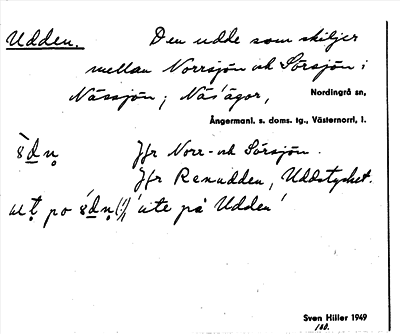 Udden. Den udde som skiljer
mellan Norrsjön och Sörsjön i
Nässjön; Näs' ägor, Nordingrå sn,
Ångermanl. s. doms. tg., Västernorrl. l.
Jfr Norr- och Sörsjön.
Jfr Renudden, Uddstycket.
po 'ute på Udden'
Sven Hiller 1949